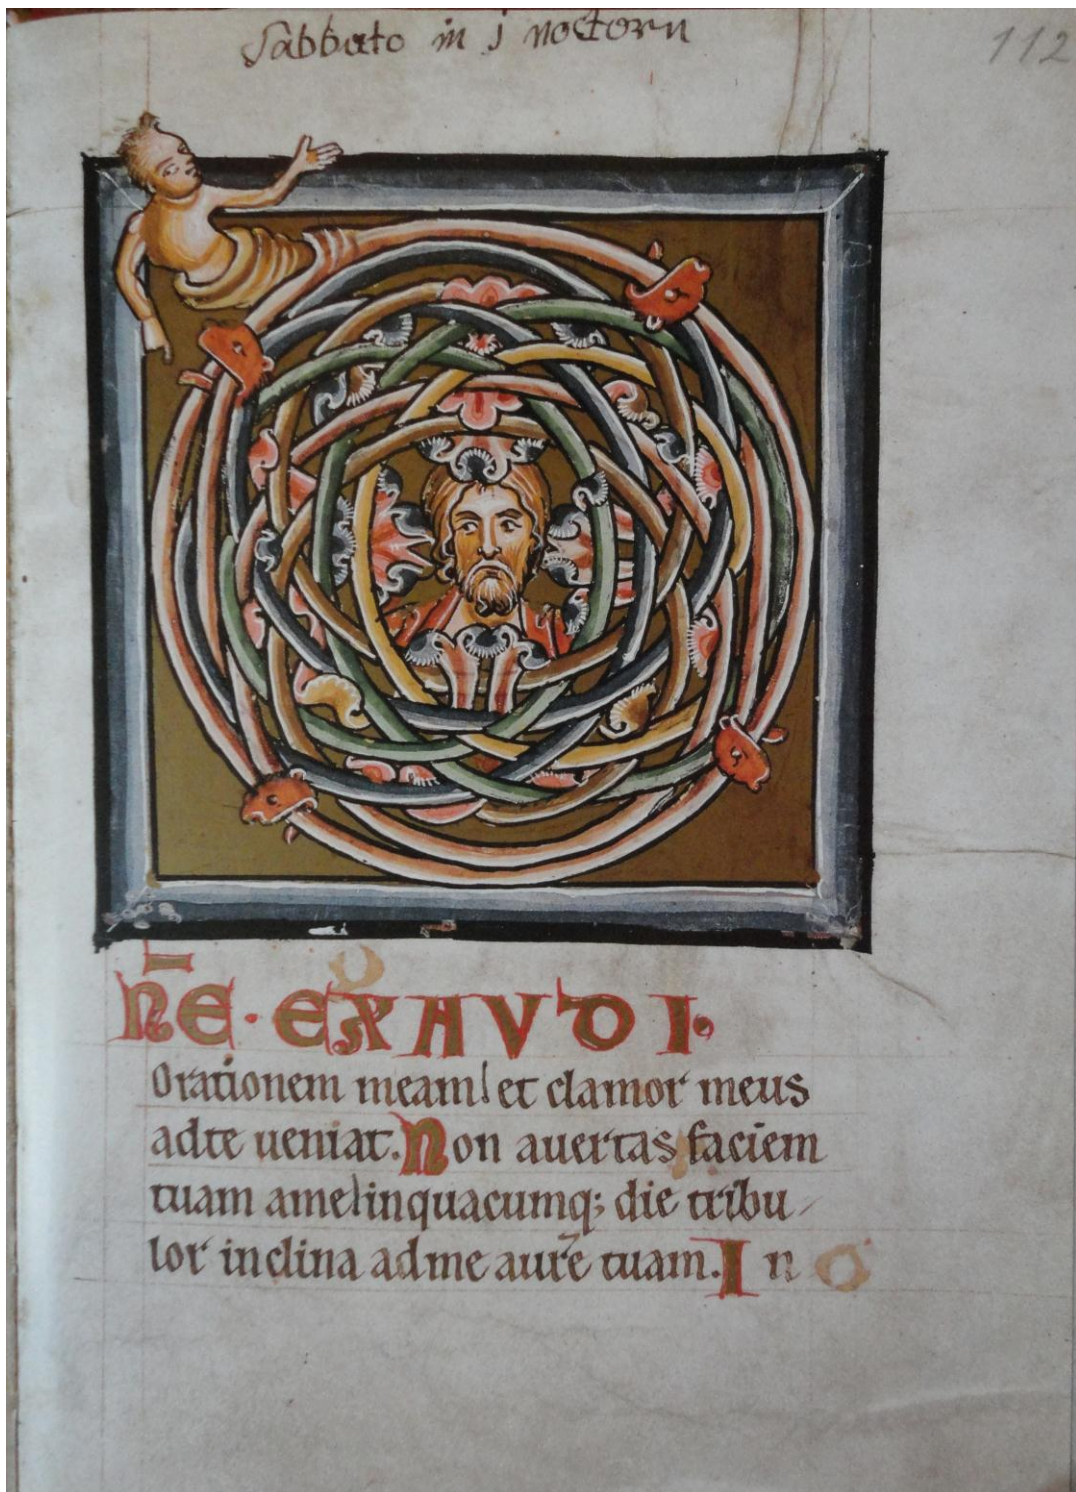 Sabbato in j nocторn
112
D
n̄e · exaudi.
Orationem meam! et clamor meus
adte ueniat. Non auertas faciem
tuam ame! inquacumq; die tribu
lor inclina adme aurē tuam. In